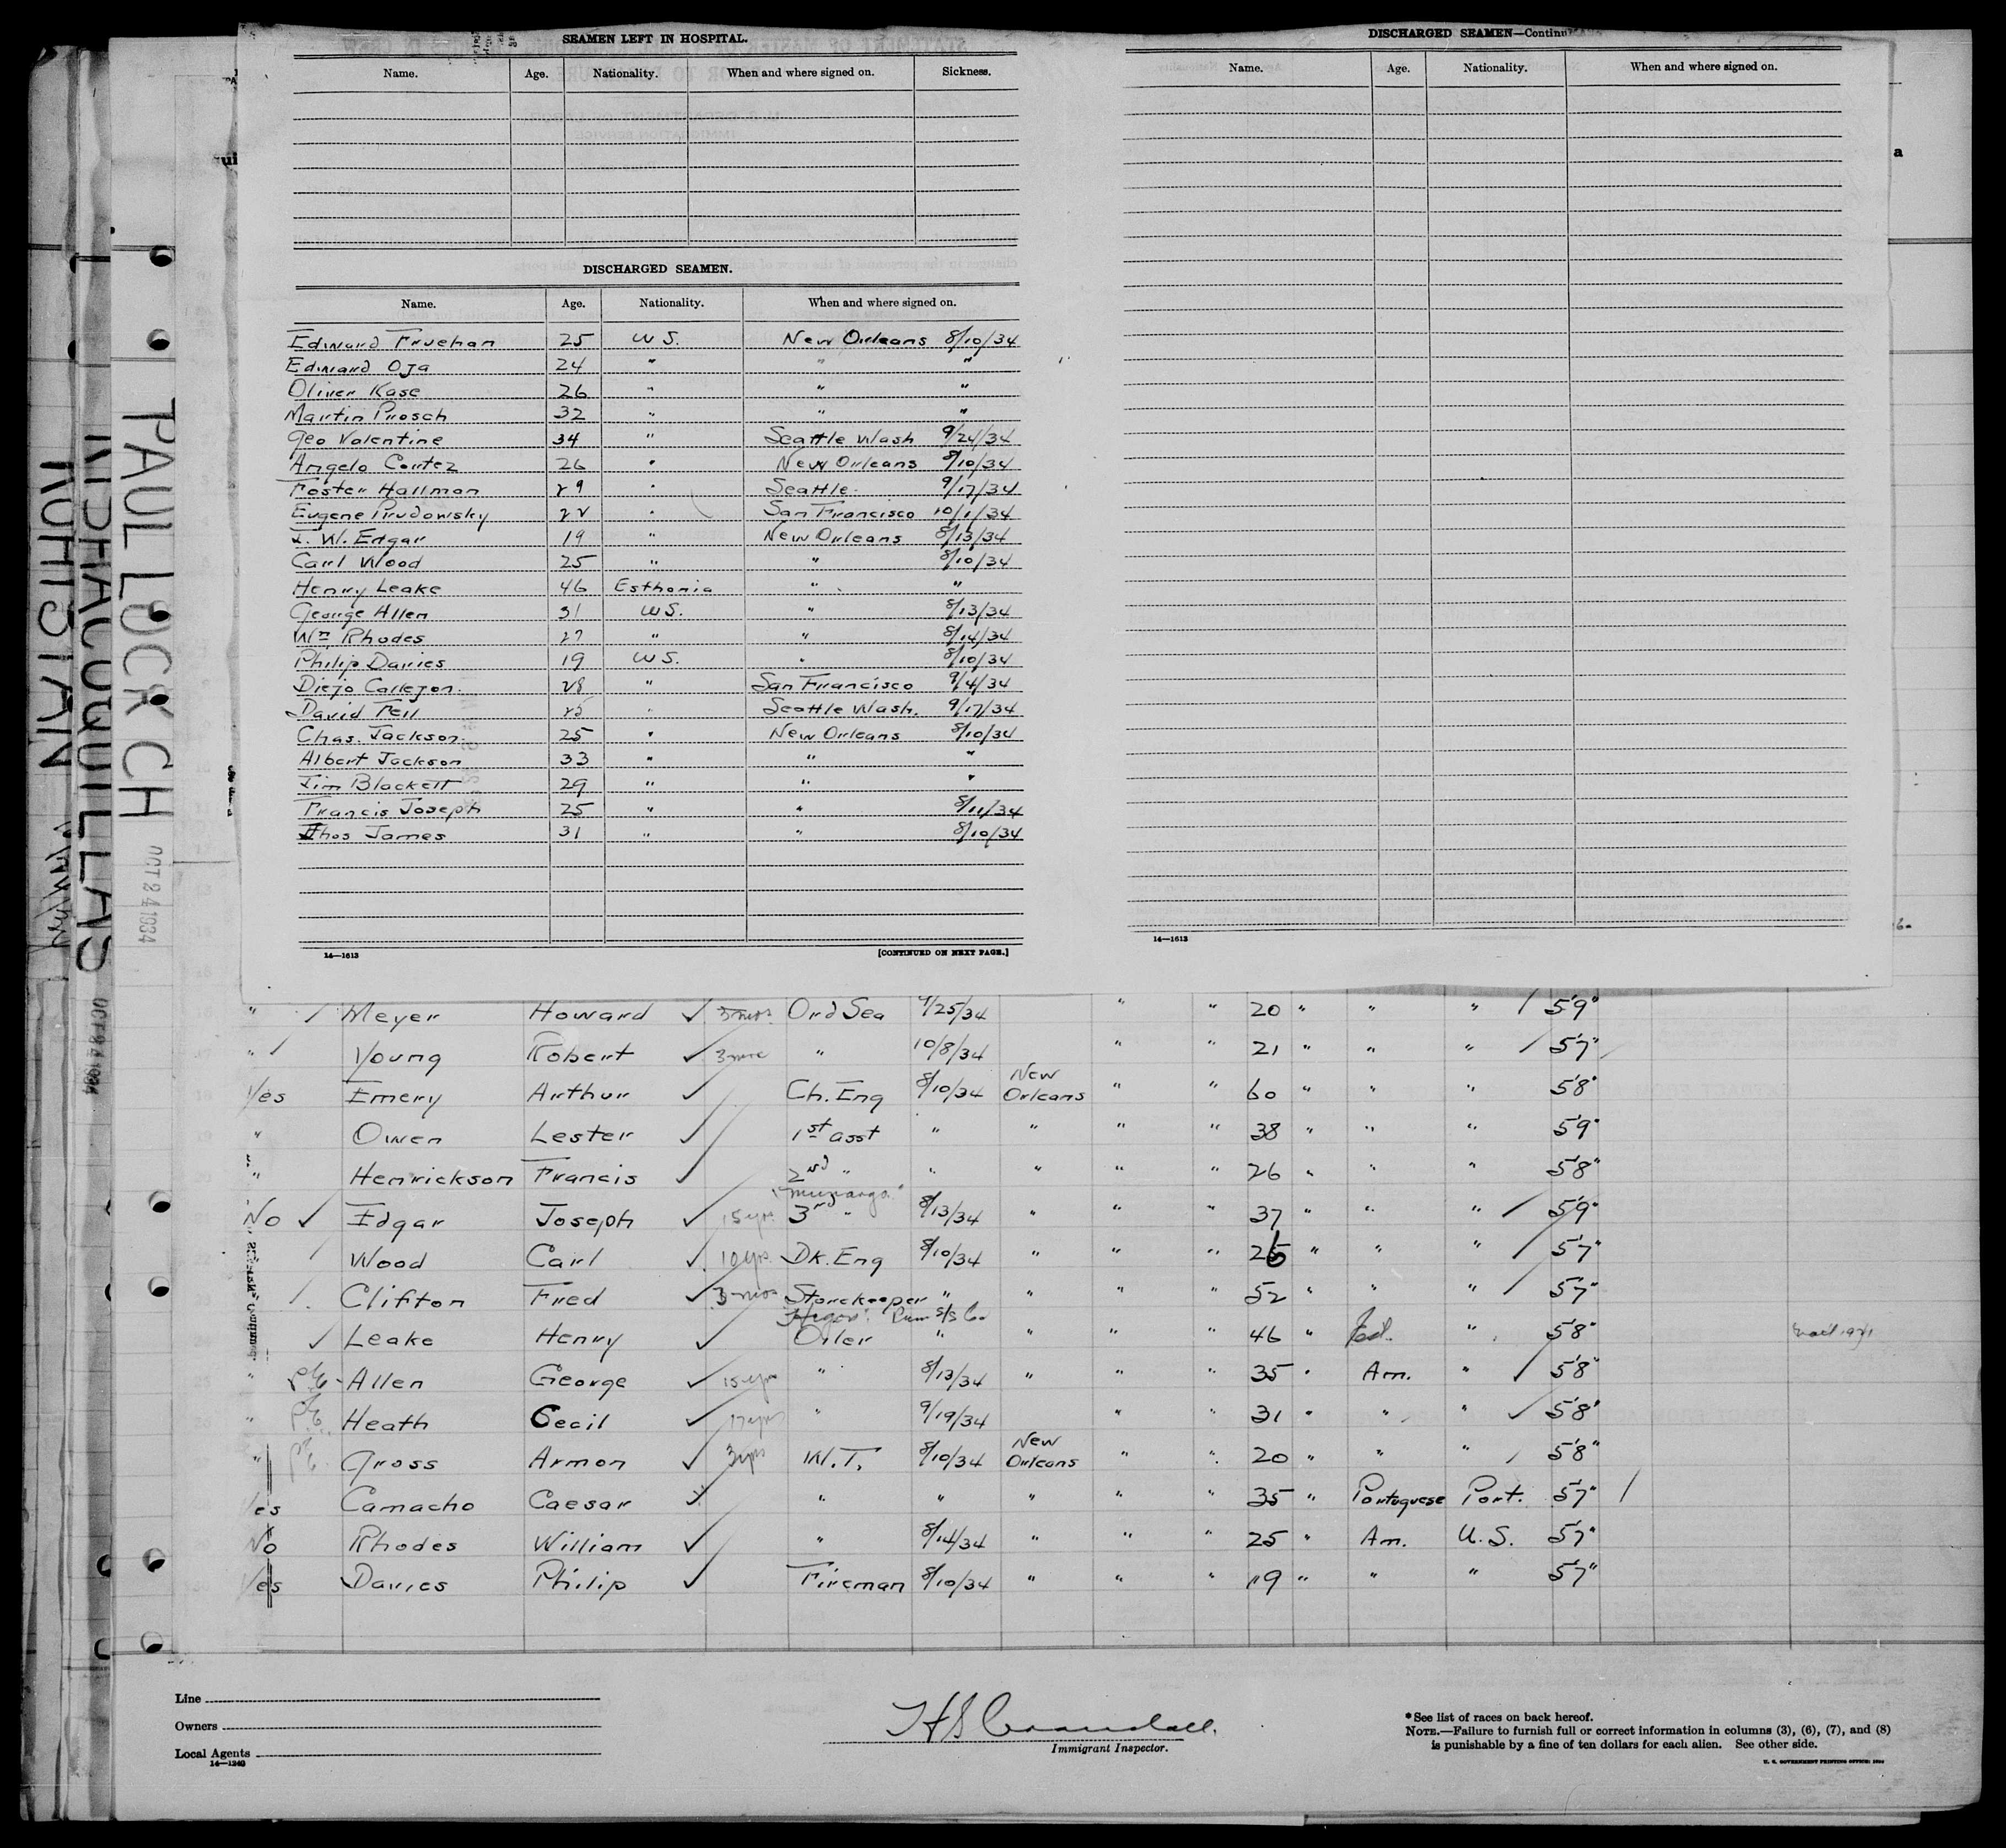 SEAMEN LEFT IN HOSPITAL.
Name. Age. Nationality. When and where signed on. Sickness.
DISCHARGED SEAMEN.
Name. Age. Nationality. When and where signed on.
Edward Fruehan 25 U S. New Orleans 8/10/34
Edward Oja 24 " " "
Oliver Kase 26 " " "
Martin Prosch 32 " " "
Geo Valentine 34 " Seattle Wash 9/24/34
Angelo Cortez 26 " New Orleans 8/10/34
Foster Hallman 29 " Seattle 9/17/34
Eugene Prudowsky 22 " San Francisco 10/1/34
J. W. Edgar 19 " New Orleans 8/13/34
Carl Wood 25 " " 8/10/34
Henry Leake 46 Esthonia " "
George Allen 31 U S. " 8/13/34
Wm Rhodes 27 " " 8/14/34
Philip Davies 19 U S. " 8/10/34
Diego Callejon. 28 " San Francisco 9/4/34
David Fell 25 " Seattle Wash. 9/17/34
Chas. Jackson. 25 " New Orleans 8/10/34
Albert Jackson 33 " " "
Jim Blackett 29 " " "
Francis Joseph 25 " " 8/11/34
Thos James 31 " " 8/10/34
14—1613 [CONTINUED ON NEXT PAGE.]
DISCHARGED SEAMEN—Continu
Name. Age. Nationality. When and where signed on.
14—1613
PAUL LOCK CH
OCT 24 1934
" Meyer Howard Ord Sea 9/25/34 " " 20 " " " 5'9"
" Young Robert " 10/8/34 " " 21 " " " 5'7"
Yes Emery Arthur Ch. Eng 8/10/34 New Orleans " " 60 " " " 5'8"
" Owen Lester 1st asst " " " " 38 " " " 5'9"
" Henrickson Francis 2nd " " " " " 26 " " " 5'8"
No Edgar Joseph 15 yrs. 3rd " 8/13/34 " " " 37 " " " 5'9"
Wood Carl 10 yrs. Dk. Eng 8/10/34 " " " 26 " " " 5'7"
Clifton Fred 3 mos Storekeeper " " " " 52 " " " 5'7"
Leake Henry Oiler " " " " 46 " " 5'8"
" Allen George 15 yrs " 8/13/34 " " " 35 " Am. " 5'8"
" Heath Cecil 17 yrs " 9/19/34 " " 31 " " " 5'8"
" Gross Armon 3 yrs W.T. 8/10/34 New Orleans " " 20 " " " 5'8"
Yes Camacho Caesar " " " " " 35 " Portuguese Port. 5'7"
No Rhodes William " 8/14/34 " " " 25 " Am. U.S. 5'7"
Yes Davies Philip Fireman 8/10/34 " " " 19 " " " 5'7"
Line
Owners
Local Agents
14—1240
Immigrant Inspector.
*See list of races on back hereof.
NOTE.—Failure to furnish full or correct information in columns (3), (6), (7), and (8)
is punishable by a fine of ten dollars for each alien. See other side.
U. S. GOVERNMENT PRINTING OFFICE: 1934